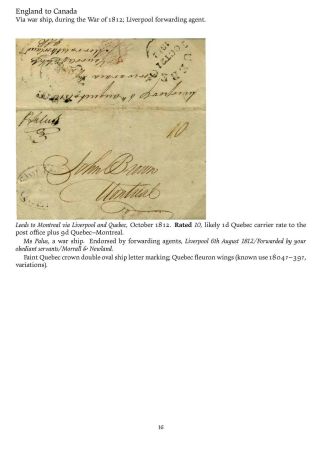 England to Canada
Via war ship, during the War of 1812; Liverpool forwarding agent.
10
John Brown
Montreal
Leeds to Montreal via Liverpool and Quebec, October 1812. Rated 10, likely 1d Quebec carrier rate to the
post office plus 9d Quebec–Montreal.
Ms Palus, a war ship. Endorsed by forwarding agents, Liverpool 6th August 1812/Forwarded by your
obedient servants/Morrall & Newland.
Faint Quebec crown double oval ship letter marking; Quebec fleuron wings (known use 1804?–39?,
variations).
16